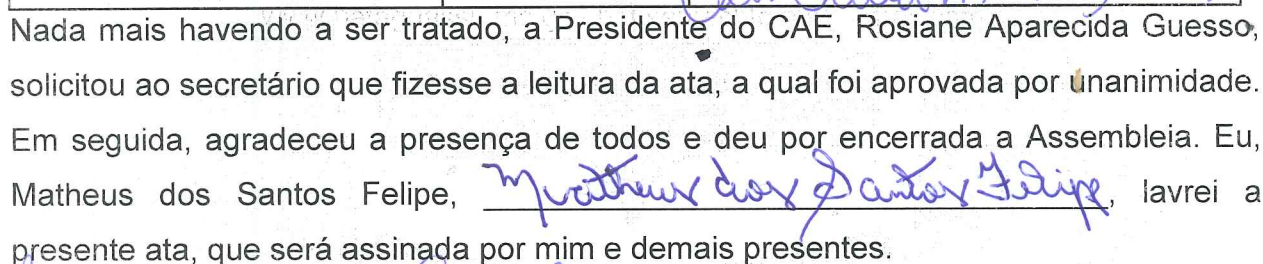 Nada mais havendo a ser tratado, a Presidente do CAE, Rosiane Aparecida Guesso,
solicitou ao secretário que fizesse a leitura da ata, a qual foi aprovada por unanimidade.
Em seguida, agradeceu a presença de todos e deu por encerrada a Assembleia. Eu,
Matheus dos Santos Felipe, Matheus dos Santos Felipe, lavrei a
presente ata, que será assinada por mim e demais presentes.